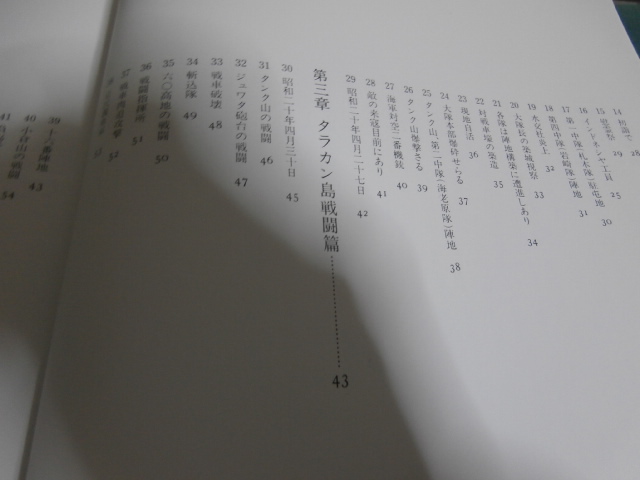 14 初詣で 28
15 慰霊祭 29
16 インドネシヤ工員 25
17 第一中隊(札木隊)駐屯地 30
18 第四中隊(岩崎隊)陣地 31
19 水父号炎上 32
20 大隊長の築城視察 33
21 各隊は陣地構築に邁進しあり 34
22 対戦車壕の築造 35
23 現地自活 36
24 大隊本部爆砕せらる 37
25 タンク山、第二中隊(海老原隊)陣地 38
26 タンク山爆撃さる 39
27 海軍対空二番機銃 40
28 敵の来寇目前にあり 41
29 昭和二十年四月二十七日 42
第三章 タラカン島戦闘篇 43
30 昭和二十年四月三十日 45
31 タンク山の戦闘 46
32 ジュワタ砲台の戦闘 47
33 戦車破壊 48
34 斬込隊 49
35 六〇高地の戦闘 50
36 戦闘指揮所 51
37 52
53
39 十八番陣地
40 小久山の奮闘 43
41 54